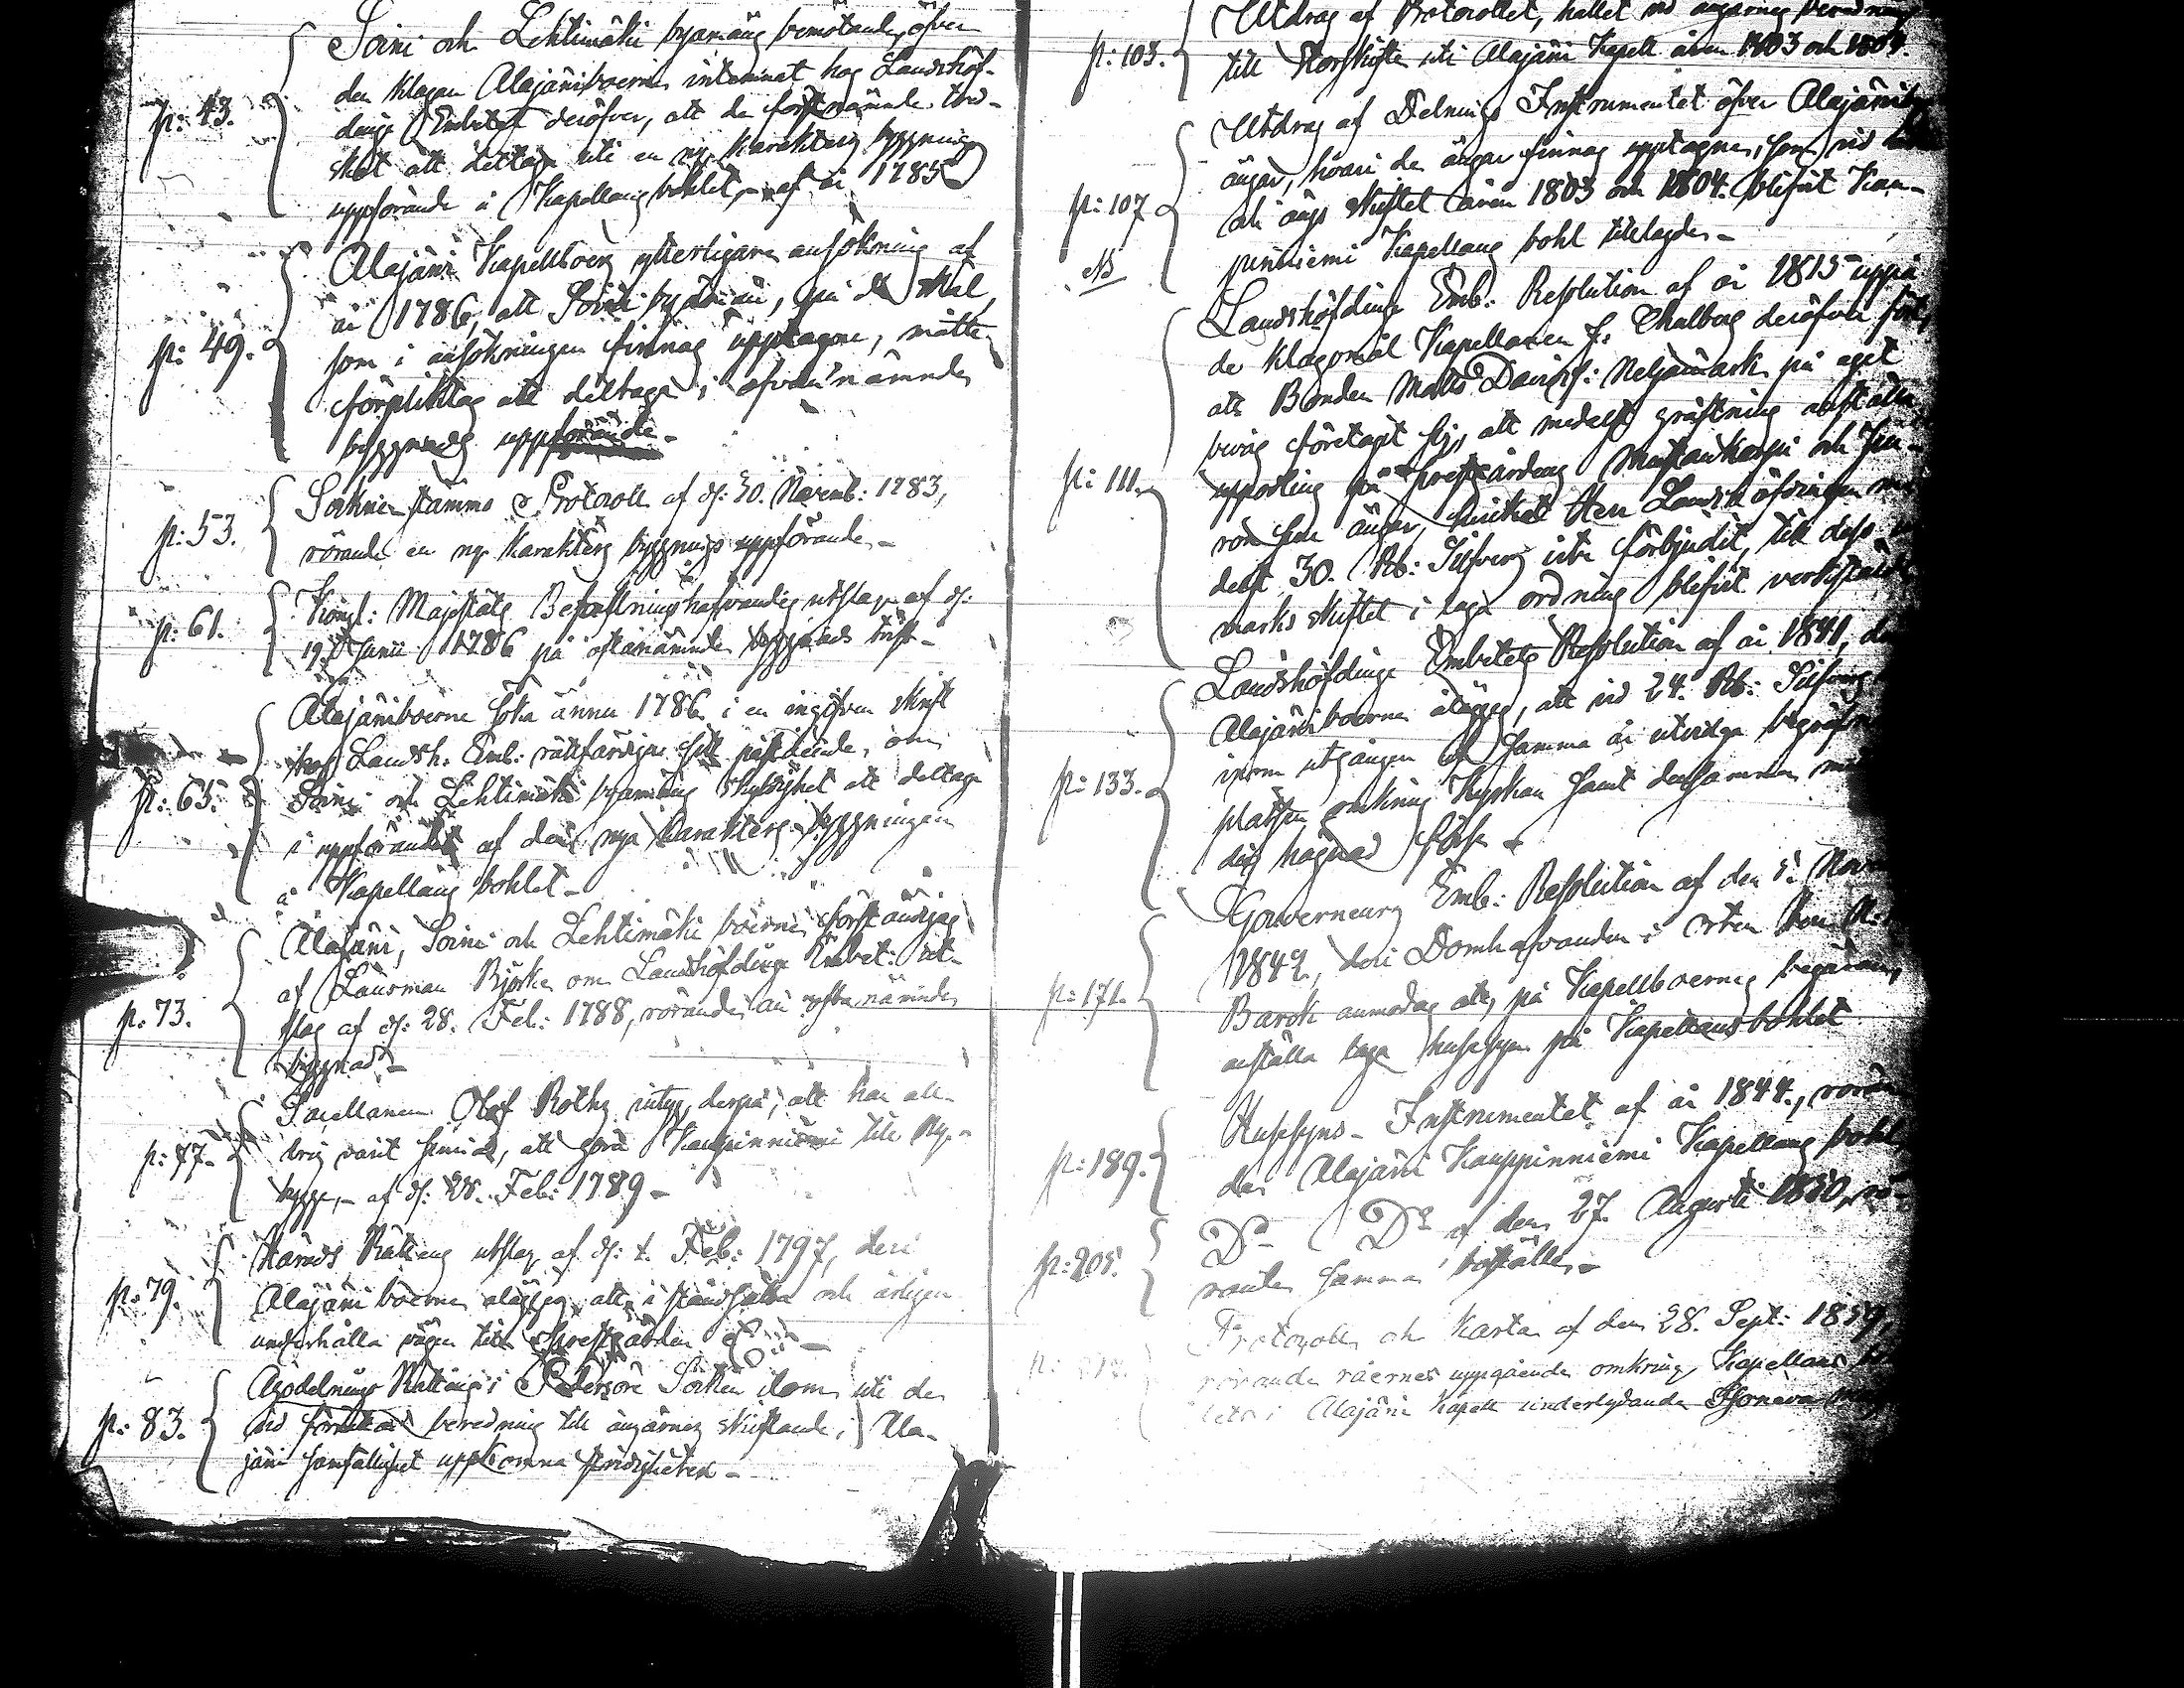 Soini och Lehtimäki byamäns bemötande, öfver
den klagan Alajärviboerne intaminat hos Landshöf-
p: 43. dinge Embetet deröfver, att de förstnämde tred-
skat att deltaga uti en ny Karakters byggnings
uppförande å Kapellans bohlet, - af år 1785
Alajärvi Kapellboers ytterligare ansökning af
år 1786, att Soini byamän, på de skäl,
p: 49. som i ansökningen finnas upptagne, måtte
förpliktas att deltaga i ofvannämnde
byggnads uppförande. -
p: 53. Sockne stämmo Protocoll af d: 30. Novemb: 1783,
rörande en ny Karakters byggnings uppförande -
p: 61. Kongl: Majestäts Befallningshafvandes utslag af d:
19 Junii 1786 på oftanämnde byggnads tvist -
Alajärviboerne söka ännu 1786 i en ingifven skrift
hos Landsh. Emb: rättfärdiga sitt påstående, om
p: 65. Soini och Lehtimäki byamäns skyldighet att deltaga
i uppförandet af den nya Karakters byggningen
å Kapellans bohlet -
Alajärvi, Soini och Lehtimäki boerne förständigas
af Länsman Björke om Landshöfdinge Embet: ut-
p: 73. slag af d: 28. Feb: 1788, rörande än ofta nämnde
byggnad -
Sacellanen Olof Roths intyg derpå, att han ald-
p: 77. rig varit sinnad, att göra Kauppinniemi till Ny-
bygge, - af d: 28. Feb: 1789 -
Härads Rättens utslag af d: Feb: 1797, deri
p: 79. Alajärvi boerne ålägges att i stånd sätta och årligen
underhålla vägen till Prestgården
Ägodelnings Rättens i Pedersöre Socken dom uti de
p: 83. vid beredning till ängarnes skiftande i Ala-
järvi samfällighet uppkomna stridigheter -
Utdrag af Protocollet, hållet vid ängarnes beredning
p: 103. till Storskifte uti Alajärvi Kapell åren 1803 och 1804.
Utdrag af Delnings Instrumentet öfver Alajärvi
ängar, hvari de ängar finnas upptagne, som vid
p: 107 ängs skiftet åren 1803 och 1804. blifvit Kau-
pinniemi Kapellans bohl tillagde -
NB
Landshöfdinge Emb: Resolution af år 1815 uppå
de klagomål Kapellanen J. Chalberg deröfver för
att Bonden Matts Davids: Neljänmark på eget
bevåg företagit sig, att medelst gräftning anställa
p: 111. uppodling på prestgårdens och
ängar, hvilket Herr Landshöfdingen me-
delst 30. Rb: Silfvers vite förbjudit, till dess
marks skiftet i laga ordning blifvit verkstäldt
Landshöfdinge Embetets Resolution af år 1841, då
Alajärviboerne ålägges, att vid 24. Rb: Silfvers
inom utgången af samma år utvidga begrafn
p: 133. platsen omkring Kyrkan samt densamma me
hägnad förse -
Gouverneurs Emb: Resolution af den 5. Nov
1842, deri Domhafvanden i Orten
p: 171. Barck anmodas att, på Kapellboernes begäran,
anställa laga hussyn på Kapellansbohlet
Hussyns-Instrumentet af år 1844., rörande
p: 189. det Alajärvi Kauppinniemi Kapellans bohl
Do Do af den 27. Augusti 1850, rö-
p: 205. rande samma boställe -
Protocoll och Karta af den 28. Sept: 1859,
rörande råernes uppgående omkring Kapellans
i Alajärvi kapell underlydande